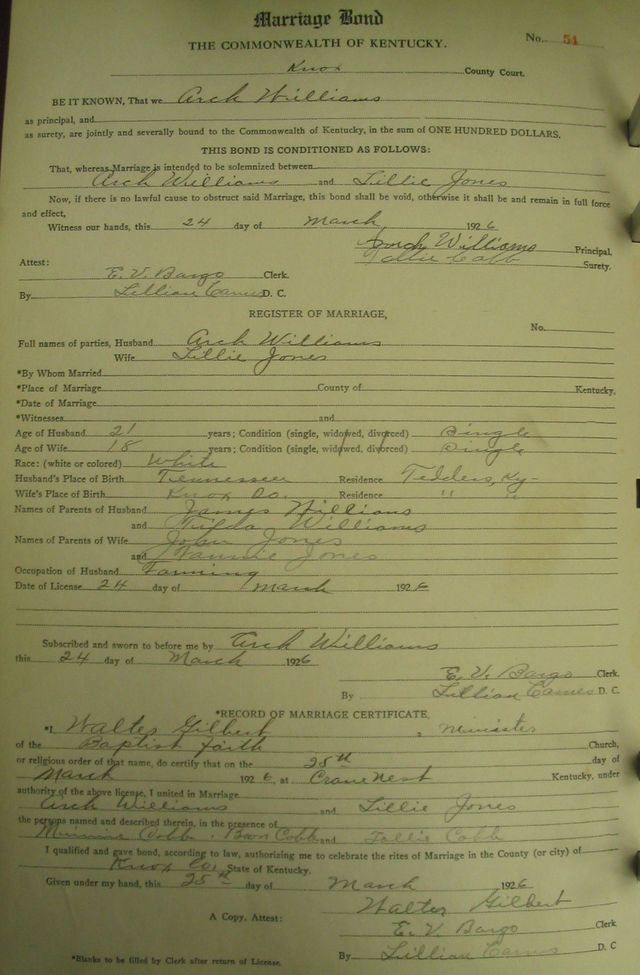 Marriage Bond
THE COMMONWEALTH OF KENTUCKY.
No. 54
Knox County Court.
BE IT KNOWN, That we Arch Williams
as principal, and
as surety, are jointly and severally bound to the Commonwealth of Kentucky, in the sum of ONE HUNDRED DOLLARS.
THIS BOND IS CONDITIONED AS FOLLOWS:
That, whereas Marriage is intended to be solemnized between
Arch Williams and Lillie Jones
Now, if there is no lawful cause to obstruct said Marriage, this bond shall be void, otherwise it shall be and remain in full force
and effect,
Witness our hands, this 24 day of March 1926
Arch Williams Principal,
Tollie Cobb Surety.
Attest:
E. V. Bargo Clerk.
By Lillian Eames D. C.
REGISTER OF MARRIAGE,
No.
Full names of parties, Husband Arch Williams
Wife Lillie Jones
*By Whom Married
*Place of Marriage County of Kentucky,
*Date of Marriage
*Witnesses and
Age of Husband 21 years; Condition (single, widowed, divorced) Single
Age of Wife 18 years; Condition (single, widowed, divorced) Single
Race: (white or colored) White
Husband's Place of Birth Tennessee Residence Tedders, Ky-
Wife's Place of Birth Knox Co. Residence " "
Names of Parents of Husband James Williams
and Tilda Williams
Names of Parents of Wife John Jones
and Nannie Jones
Occupation of Husband Farming
Date of License 24 day of March 1926
Subscribed and sworn to before me by Arch Williams
this 24 day of March 1926
E. V. Bargo Clerk,
By Lillian Eames D. C.
*RECORD OF MARRIAGE CERTIFICATE,
*I, Walter Gilbert, Minister
of the Baptist faith Church,
or religious order of that name, do certify that on the 25th day of
March 1926, at Crane Nest Kentucky, under
authority of the above license, I united in Marriage
Arch Williams and Lillie Jones
the persons named and described therein, in the presence of
Minnie Cobb, Cobb and Tollie Cobb
I qualified and gave bond, according to law, authorizing me to celebrate the rites of Marriage in the County (or city) of
Knox Co. State of Kentucky.
Given under my hand, this 25th day of March 1926
Walter Gilbert
A Copy, Attest: E. V. Bargo Clerk
By Lillian Eames D. C
*Blanks to be filled by Clerk after return of License.